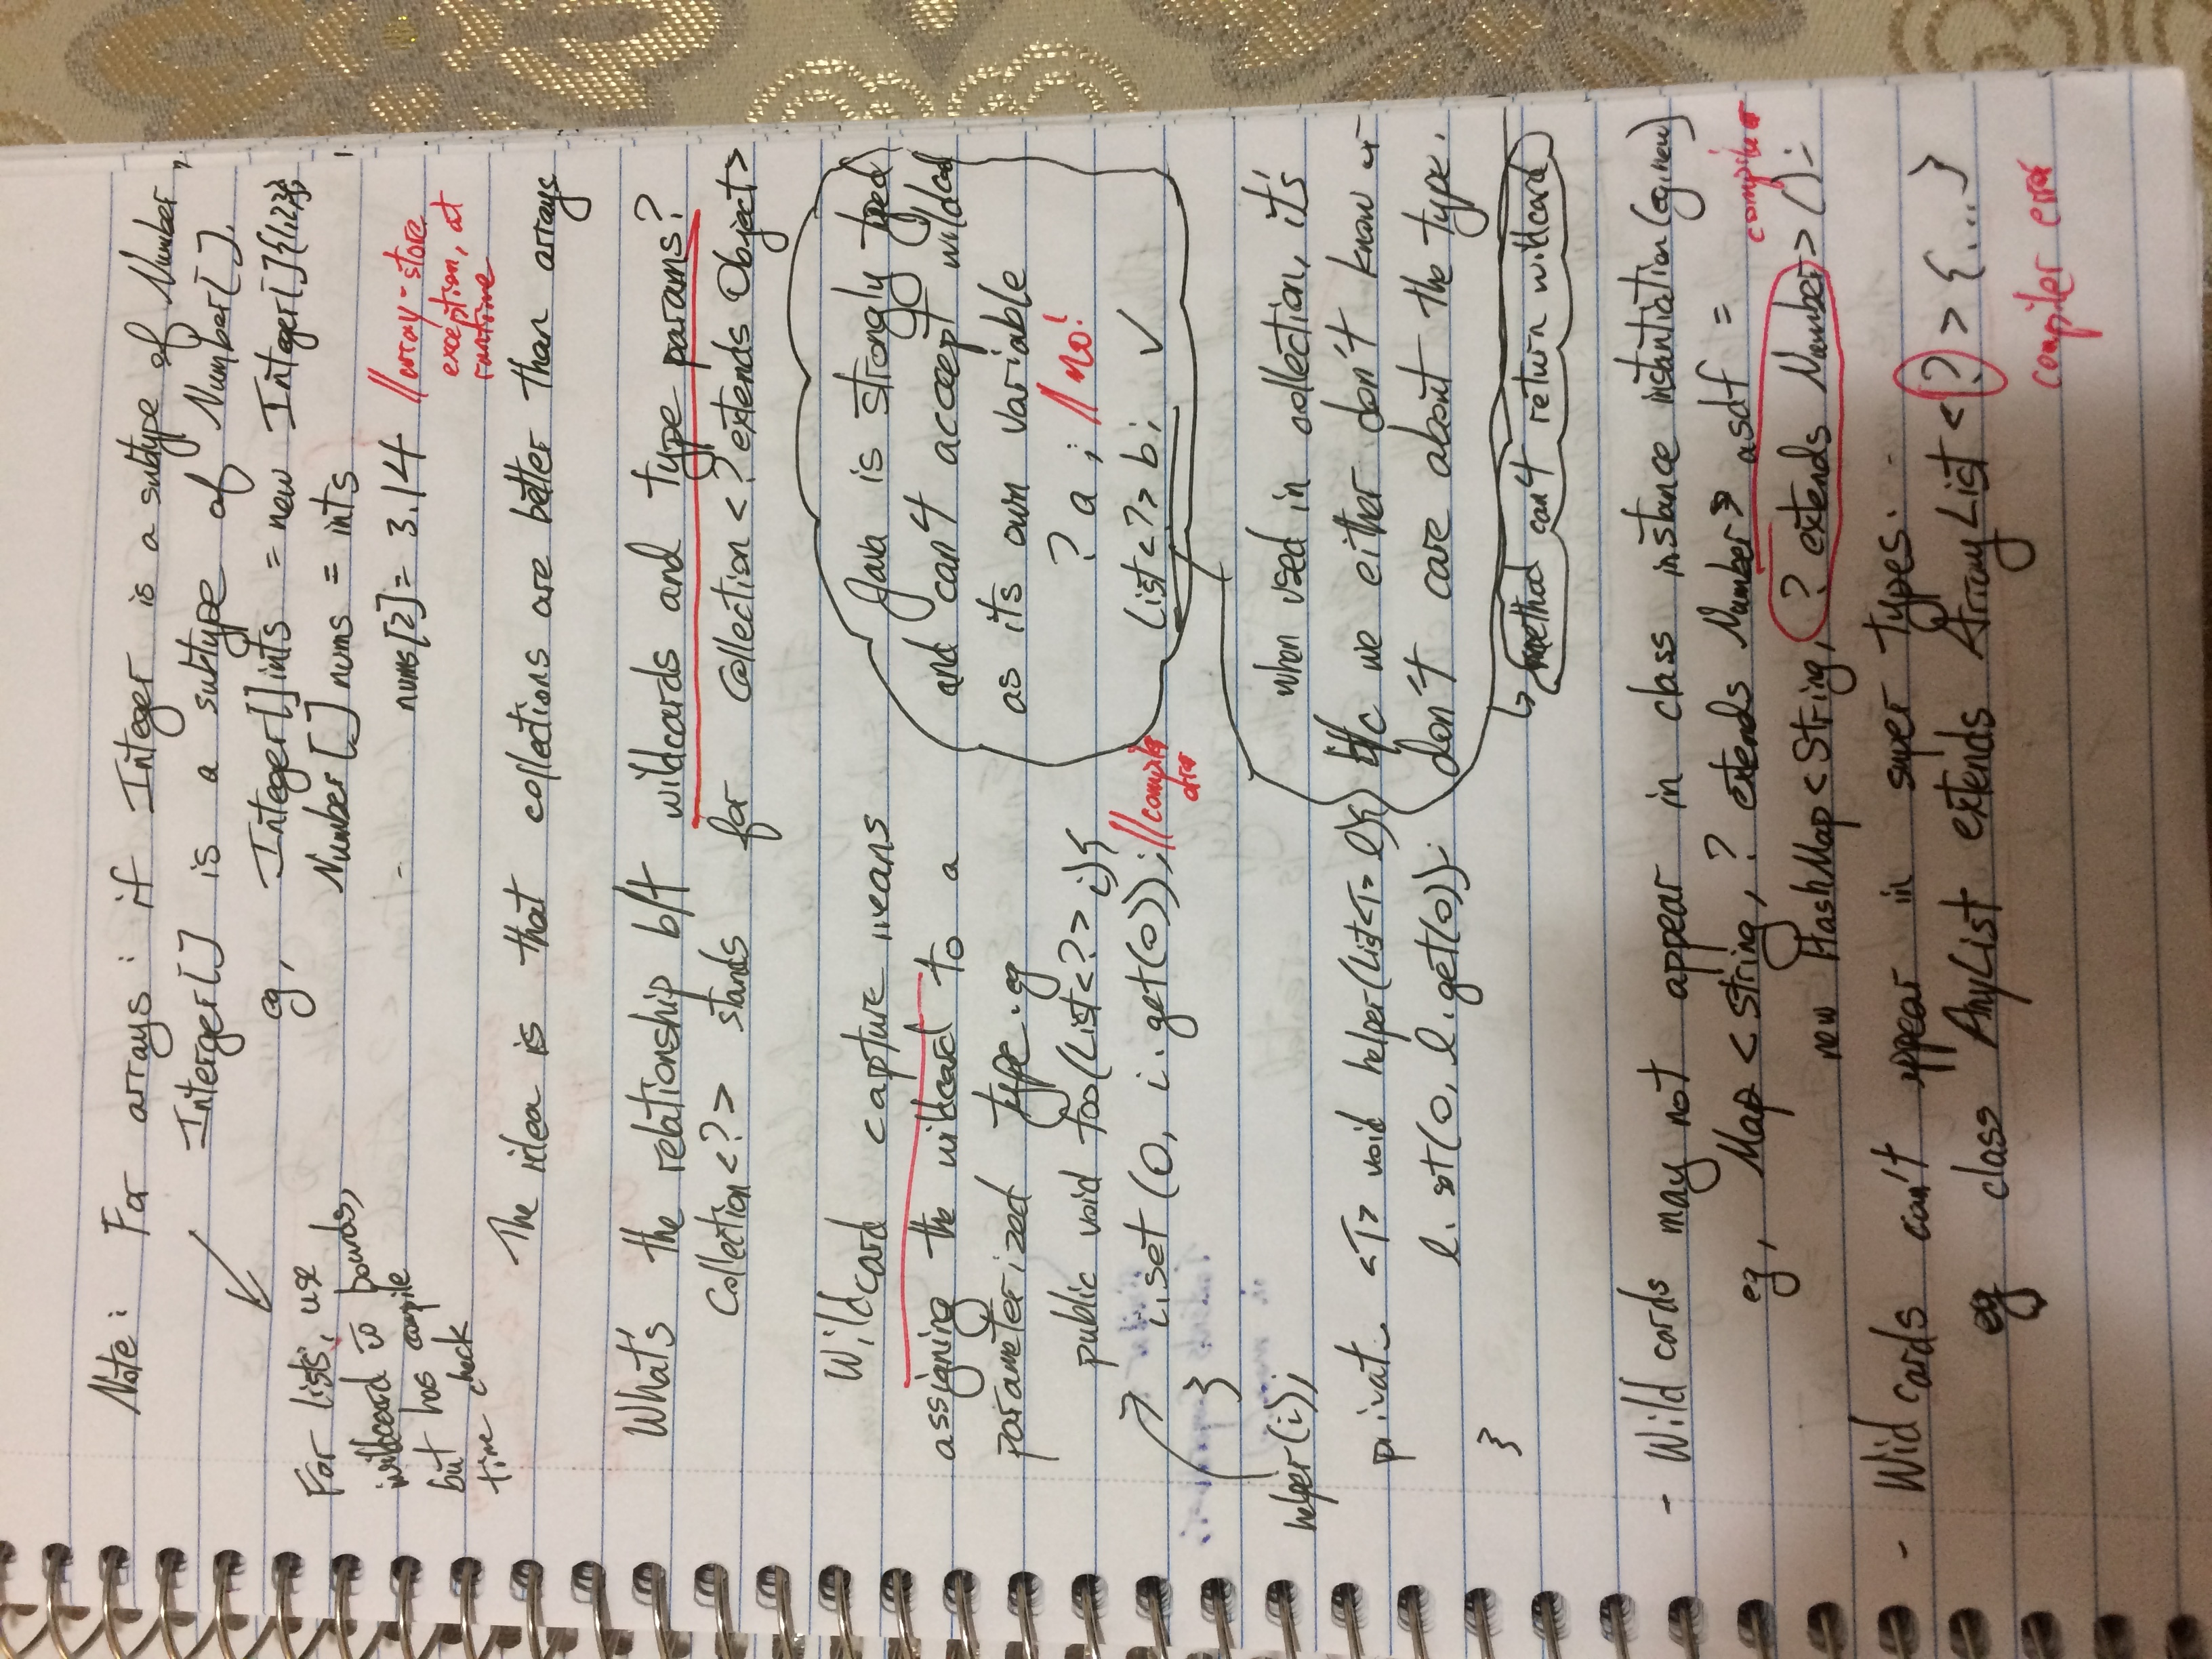 Note: For arrays: if Integer is a subtype of Number,
Interger[] is a subtype of Number[].
eg, Integer[] ints = new Integer[]{1,2,3};
Number[] nums = ints
nums[2] = 3.14 //array-store
exception, at
runtime
For lists, use
wildcard w bounds,
but has compile
time check
The idea is that collections are better than arrays
What's the relationship b/t wildcards and type params?
Collection<?> stands for Collection<? extends Object>
Wildcard capture means
assigning the wildcard to a
parameterized type. eg
public void foo(List<?> i){
i.set(0, i.get(0)); //compile
error
}
helper(i);
private <T> void helper(List<T> l){
l.set(0, l.get(0));
}
Java is strongly typed
and can't acceept wildcad
as its own variable
? a; //no!
List<?> b; ✓
when used in collection, it's
b/c we either don't know or
don't care about the type.
↳ method can't return wildcard
- Wild cards may not appear in class instance instantiation (eg. new)
eg, Map<String, ? extends Number> asdf =
new HashMap<String, ? extends Number>();
compile
- Wid cards can't appear in super types.
eg class AnyList extends ArrayList<?> {...}
compiler error